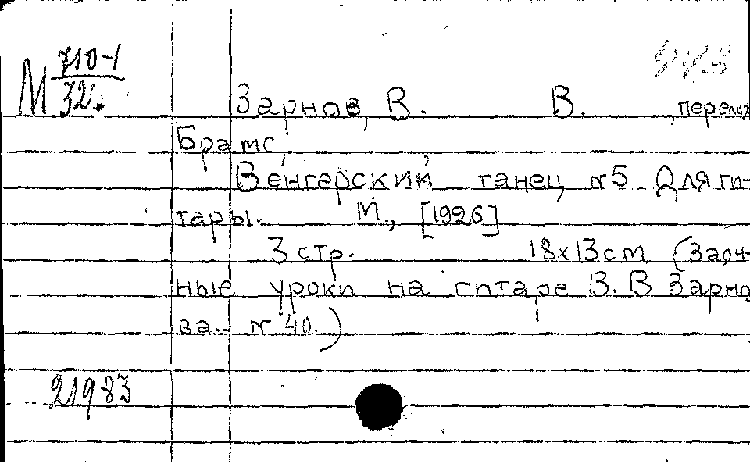 М 710-1
32
Зарнов, В. В. перелож
Брамс
Венгерский танец №5. Для ги-
тары. М., [1926]
3 стр. 18х13см (Заоч-
ные уроки на гитаре В. В Зарно
ва. №40.)
21983